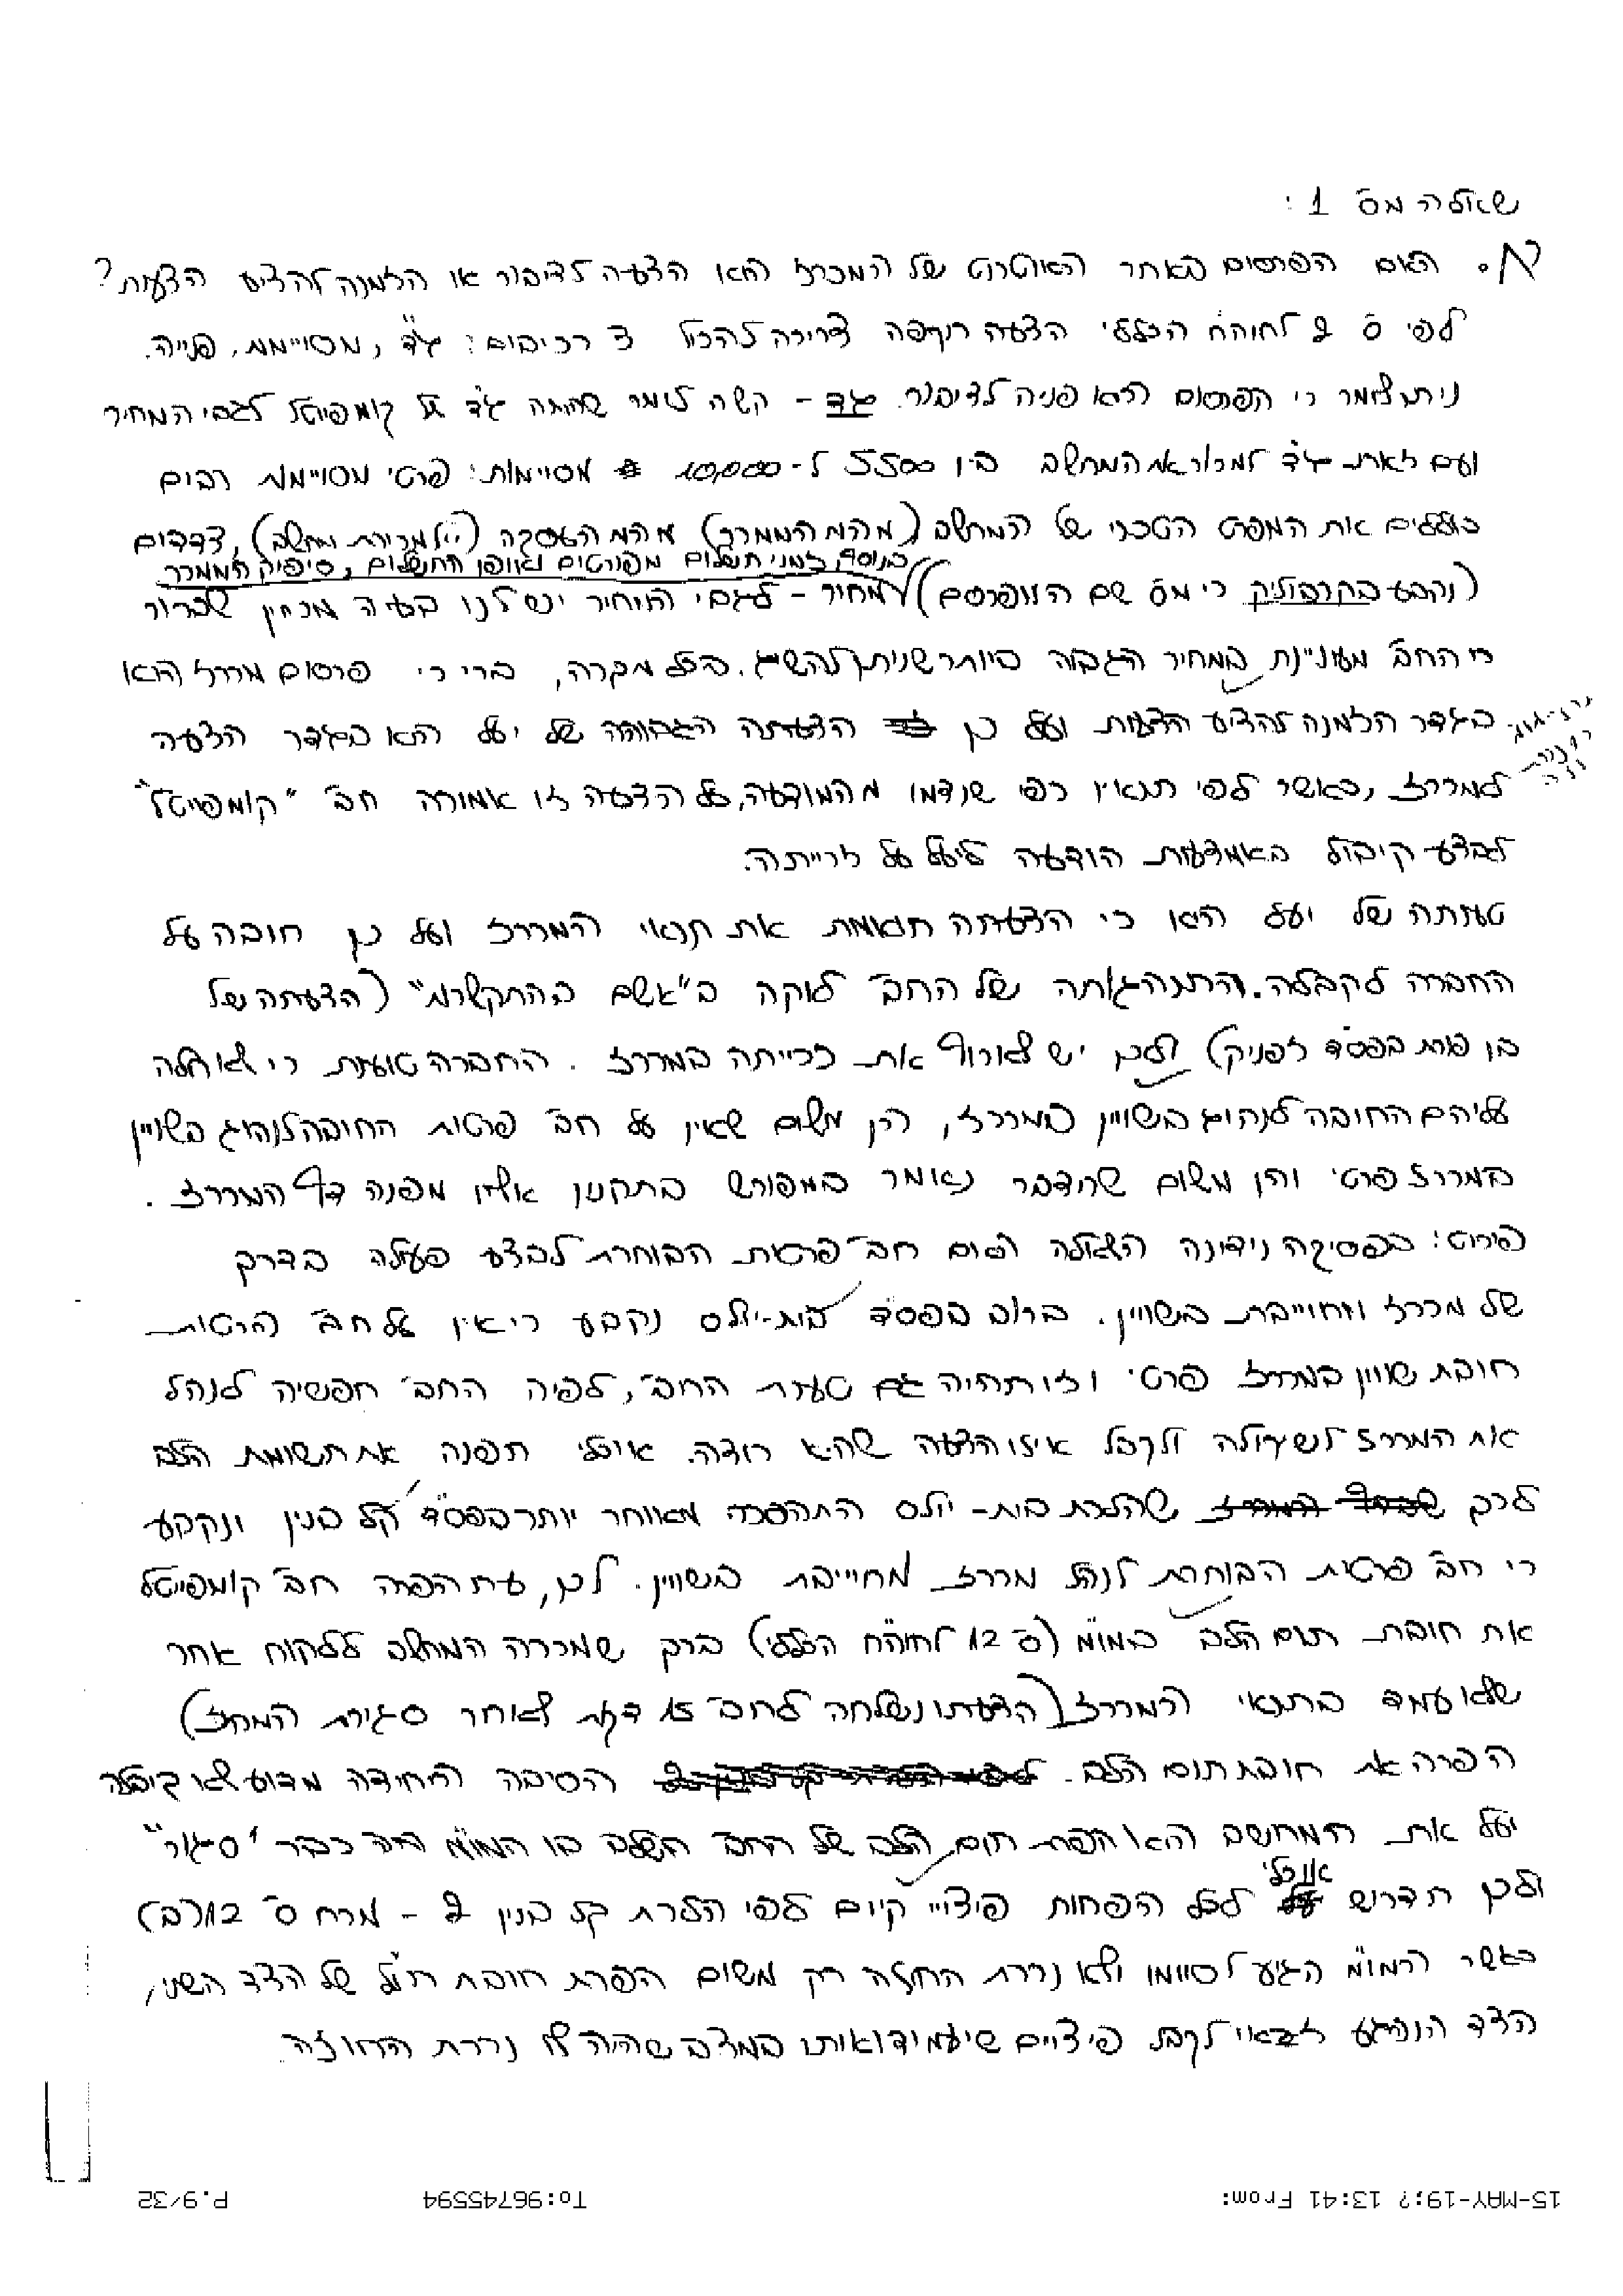 שאלה מס' 1:
א. האם הפרסום באתר האוטרנט של המכרז הוא הצעה לציבור או הזמנה להציע הצעות?
לפי ס' 2 לחוה"ח הכללי הצעה תקפה צריכה להכיל 3 רכיבים: גמ"ד, מסויימות, פנייה.
ניתן לומר כי הפרסום הוא פניה לציבור. גמד - קשה לומר שהיתה גמ"ד של קומפיוטל לגבי המחיר
ועם זאת גמ"ד למכור את המחשב בין 5500 ל-10,000 מסויימות: פרטי מסויימות רבים
כוללים את המפרט הטכני של המחשב (מהות הממכר) מהות העסקה (מכירת מחשב), צדדים
בנוסף זמני תשלום מפורטים ואופן התשלום, סיפוק הממכר
(נקבע בקרפולניק כי מס' שם המפרסם) מחיר - לגבי המחיר יש לנו בעיה מכיוון שברור
כי החב' מעוניינת במחיר הגבוה ביותר שניתן להשיג. בכל מקרה, ברי כי פרסום מכרז הוא
בגדר הזמנה להציע הצעות ועל כן הצעתה הגבוהה של יעל היא בגדר הצעה
למכרז, כאשר לפי תנאיו כפי שנלמדו מהמודעה, על הצעה זו אמורה חב' "קומפיוטל"
לבצע קיבול באמצעות הודעה ליעל על זכייתה.
טענתה של יעל היא כי הצעתה תואמת את תנאי המכרז ועל כן חובה על
החברה לקבלה. התנהגותה של החב' לוקה ב"אשם בהתקשרות" (הצעתה של
בן פורת בפס"ד זפניק) ולכן יש לאכוף את זכייתה במכרז. החברה טוענת כי לא חלה
עליהם החובה לנהוג בשוויון במכרז, הן משום שאין על חב' פרטית החובה לנהוג בשוויון
במכרז פרטי והן משום שהדבר נאמר במפורש בתקנון אליו מפנה דף המכרז.
פירוט: בפסיקה נידונה השאלה האם חב' פרטית הבוחרת לבצע פעולה בדרך
של מכרז מחוייבת בשוויון. ברוב בפס"ד בית-יולס נקבע כי אין על חב' פרטית
חובת שוויון במכרז פרטי וזו תהיה גם טענת החב', לפיה החב' חפשיה לנהל
את המכרז לשיקולה ולקבל איזו הצעה שהיא רוצה. אולי תפנה את תשומת הלב
לכך שהלכת בית-יולס התהפכה מאוחר יותר בפס"ד קל בנין ונקבע
כי חב' פרטית הבוחרת לנהל מכרז מחוייבת בשוויון. לכן, עת הפרה חב' קומפיוטל
את חובת תום הלב במו"מ (ס' 12 לחוה"ח הכללי) בכך שמכרה המחשב ללקוח אחר
שלא עמד בתנאי המכרז (הצעתו נשלחה לחב' 15 דקות לאחר סגירת המכרז)
הפרה את חובת תום הלב. הסיבה היחידה מדוע לא קיבלה
יעל את המחשב היא הפרת תום הלב של החב' השלב בו המו"מ היה כבר "סגור"
ולכן תדרוש אולי לכל הפחות פיצויי קיום לפי הלכת קל בנין 2 - מכח ס' 12(ב)
כאשר המו"מ הגיע לסיומו ולא נכרת החוזה רק משום הפרת חובת תו"ל של הצד השני,
הצד הנפגע זכאי לקבל פיצויים שיעמידו אותו במצב שהיה לו נכרת החוזה
15-MAY-19;? 13:41 From: To:96745594 P.9/32